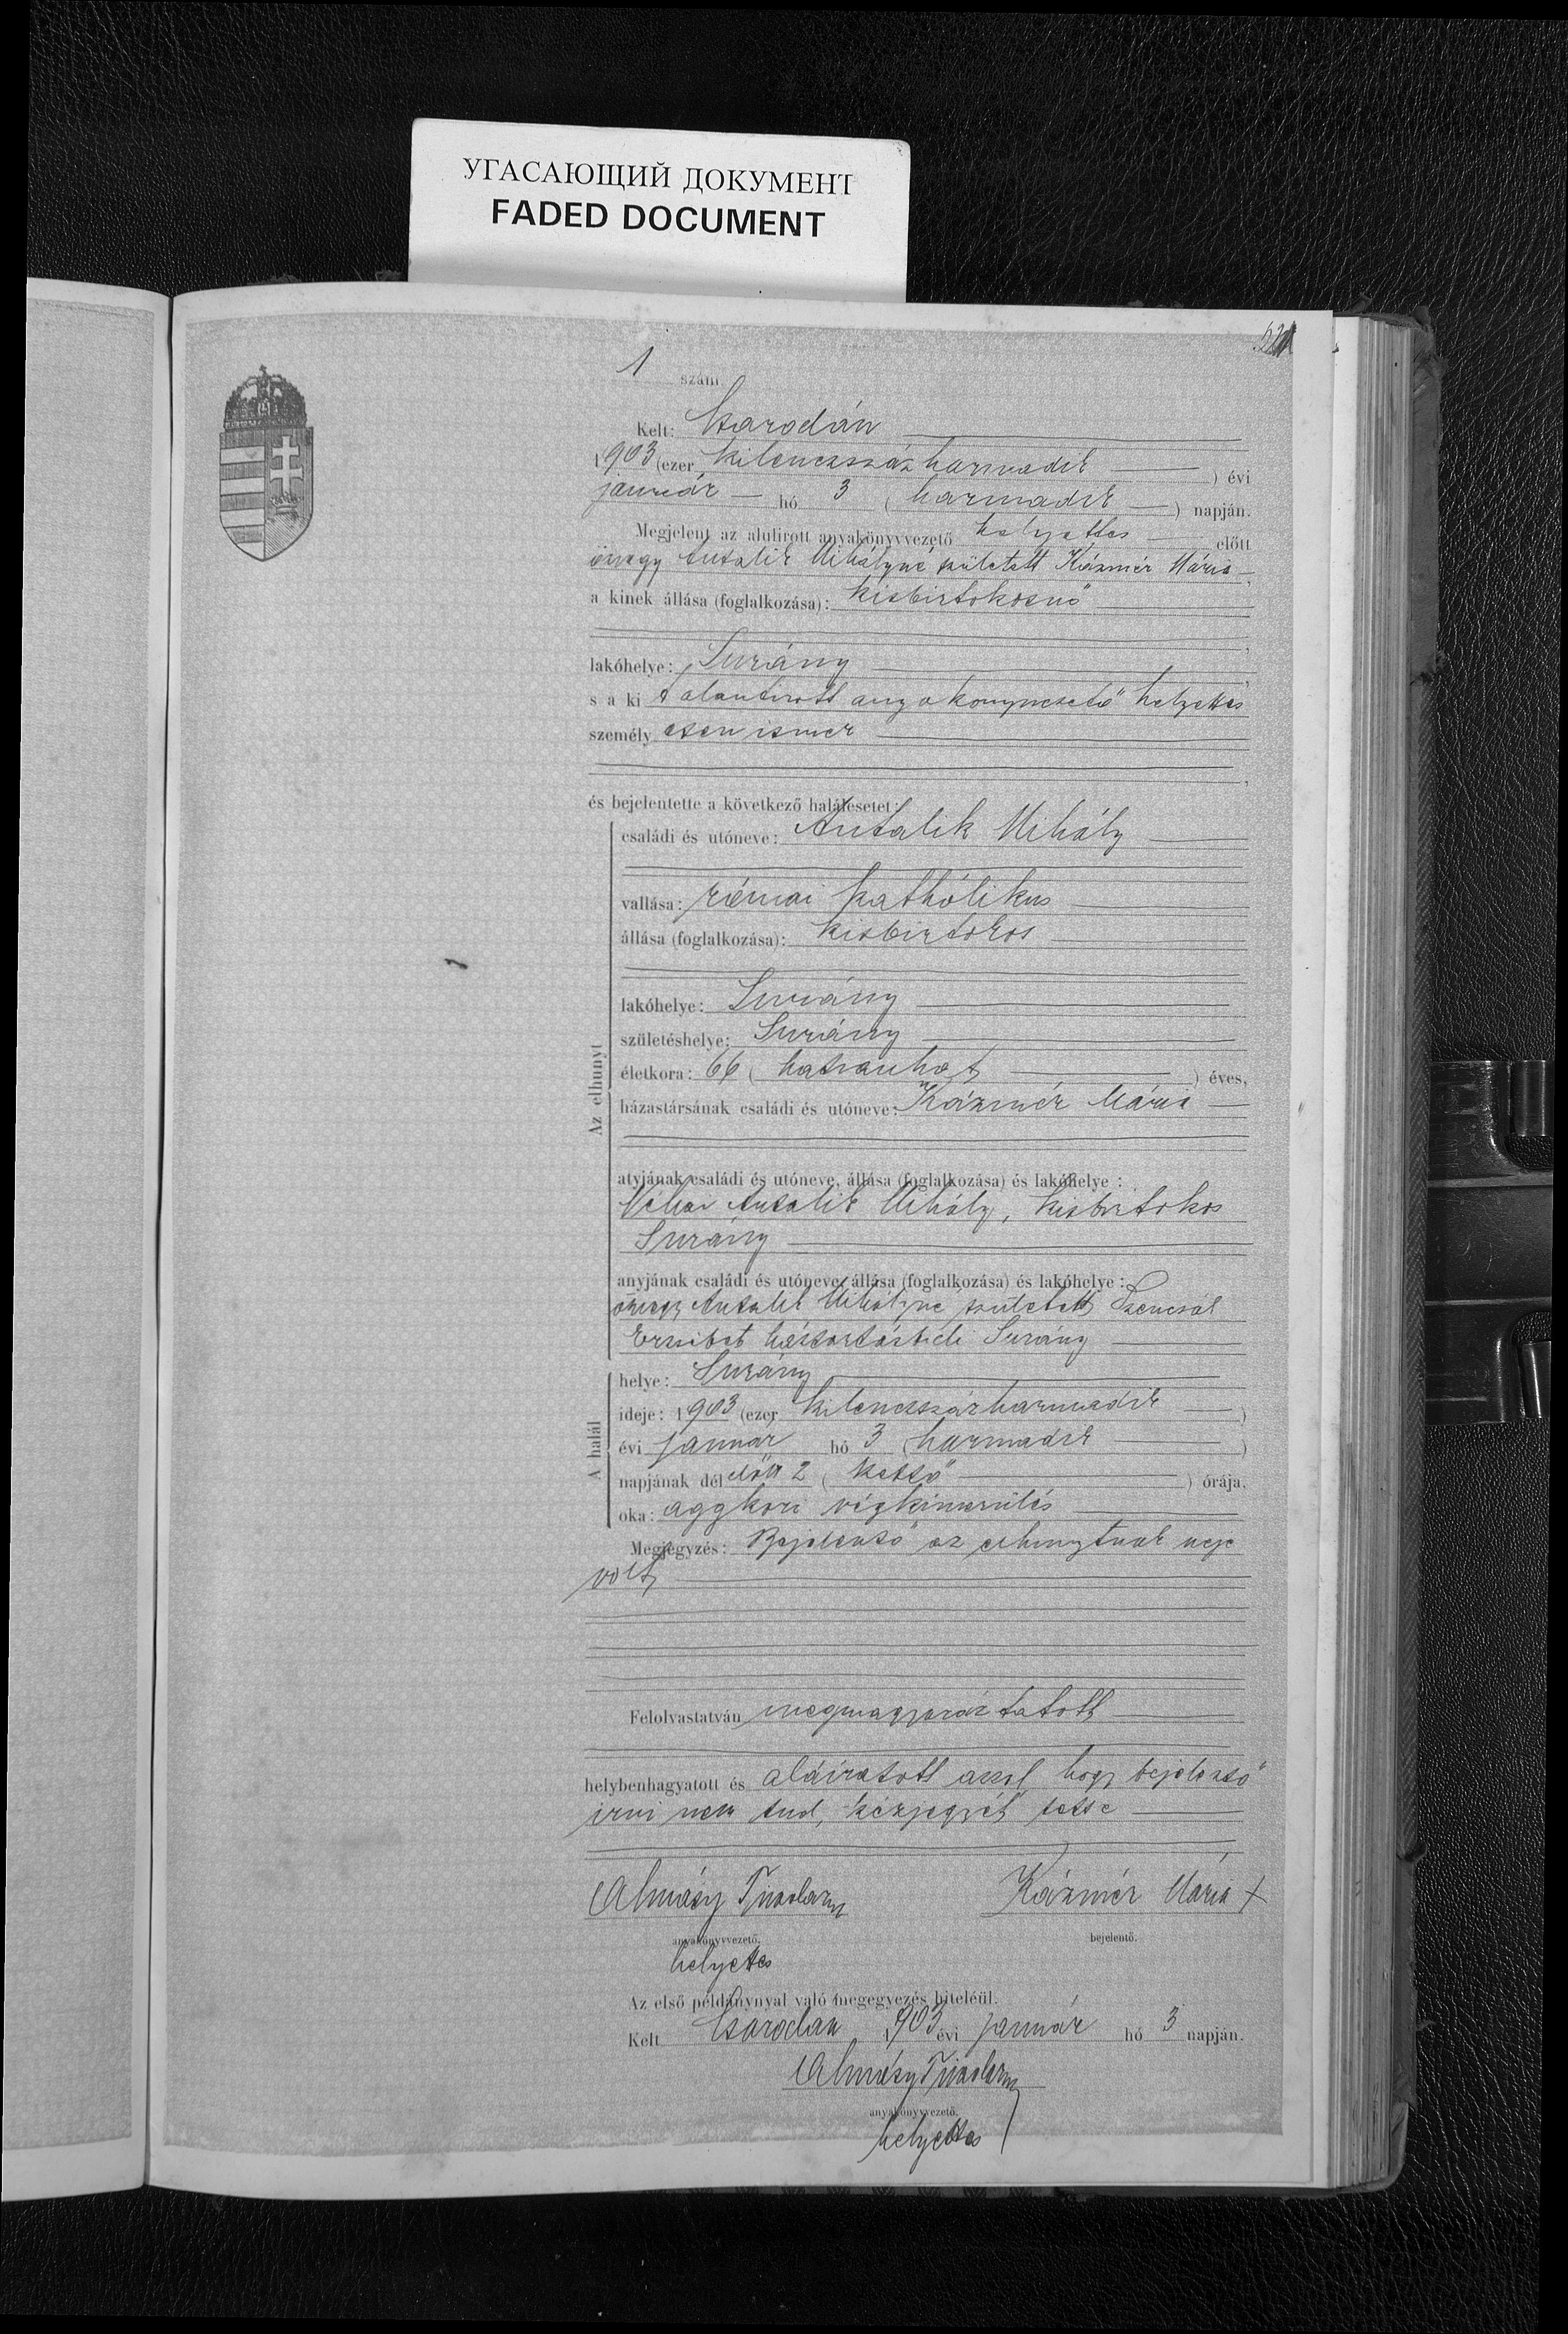 УГАСАЮЩИЙ ДОКУМЕНТ
FADED DOCUMENT
1 szám.
Kelt: Csarodán
1903 (ezer kilenczszázharmadik) évi
január hó 3 (harmadik) napján.
Megjelent az alulirott anyakönyvvezető helyettes előtt
özvegy Antalik Mihályné született Kázmér Mária,
a kinek állása (foglalkozása): kisbirtokosnő
lakóhelye: Surány,
s a ki t alantirott anyakönyvvezető helyettes
személyesen ismer
és bejelentette a következő halálesetet:
Az elhunyt
családi és utóneve: Antalik Mihály
vallása: római kathólikus
állása (foglalkozása): kisbirtokos
lakóhelye: Surány
születéshelye: Surány
életkora: 66 (hatvanhat) éves,
házastársának családi és utóneve: Kázmér Mária
atyjának családi és utóneve, állása (foglalkozása) és lakóhelye:
Néhai Antalik Mihály, kisbirtokos
Surány
anyjának családi és utóneve, állása (foglalkozása) és lakóhelye:
özvegy Antalik Mihályné született
Erzsébet háztartásbeli Surány
A halál
helye: Surány
ideje: 1903 (ezer kilenczszázharmadik)
évi január hó 3 (harmadik)
napjának dél előtt 2 (kettő) órája.
oka: aggkori végkimerülés
Megjegyzés: Bejelentő az elhunytnak neje
volt
Felolvastatván megmagyaráztatott
helybenhagyatott és aláiratott azzal hogy bejelentő
irni nem tud, kézjegyét tette
Almásy Tivadarné Kázmér Mária +
anyakönyvvezető. bejelentő.
helyettes
Az első példánynyal való megegyezés hiteléül.
Kelt Csarodan 1903 évi január hó 3 napján.
Almásy Tivadarné
anyakönyvvezető.
helyettes